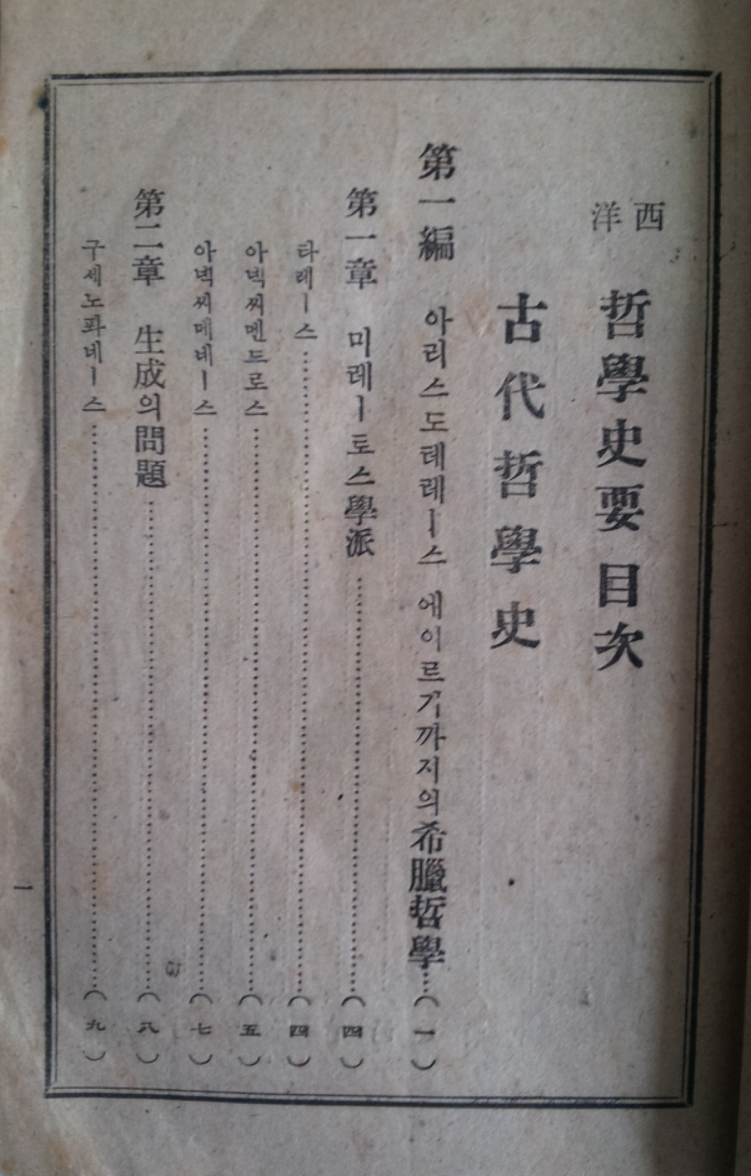 西洋 哲學史要 目次
古代哲學史
第一編 아리스도테레ㅣ스 에이르기까지의 希臘哲學…(一)
第一章 미레ㅣ토스學派……(四)
타레ㅣ스……(四)
아넥씨멘드로스……(五)
아넥씨메네ㅣ스……(七)
第二章 生成의 問題……(八)
구세노파네ㅣ스……(九)
一